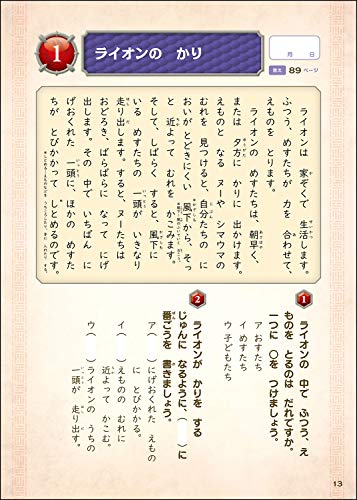 1
ライオンの かり
月 日
答え 89ページ
ライオンは 家ぞくで 生活します。
ふつう、めすたちが 力を 合わせて、
えものを とります。
ライオンの めすたちは、朝早く、
または 夕方に かりに 出かけます。
えものと なる ヌーや シマウマの
むれを 見つけると、自分たちの に
おいが とどきにくい 風下から、そっ
と 近よって むれを かこみます。
そして、しばらく すると、風下に
いる めすたちの 一頭が いきなり
走り出します。すると、ヌーたちは
おどろき、ばらばらに なって にげ
出します。その中で いちばん に
げおくれた 一頭に、ほかの めすた
ちが とびかかって しとめるのです。
1 ライオンの 中で ふつう、え
ものを とるのは だれですか。
一つに ○を つけましょう。
ア おすたち
イ めすたち
ウ 子どもたち
2 ライオンが かりを する
じゅんに なるように、( )に
番ごうを 書きましょう。
ア( )にげおくれた えもの
に とびかかる。
イ( )えものの むれに
近よって かこむ。
ウ( )ライオンの うちの
一頭が 走り出す。
13